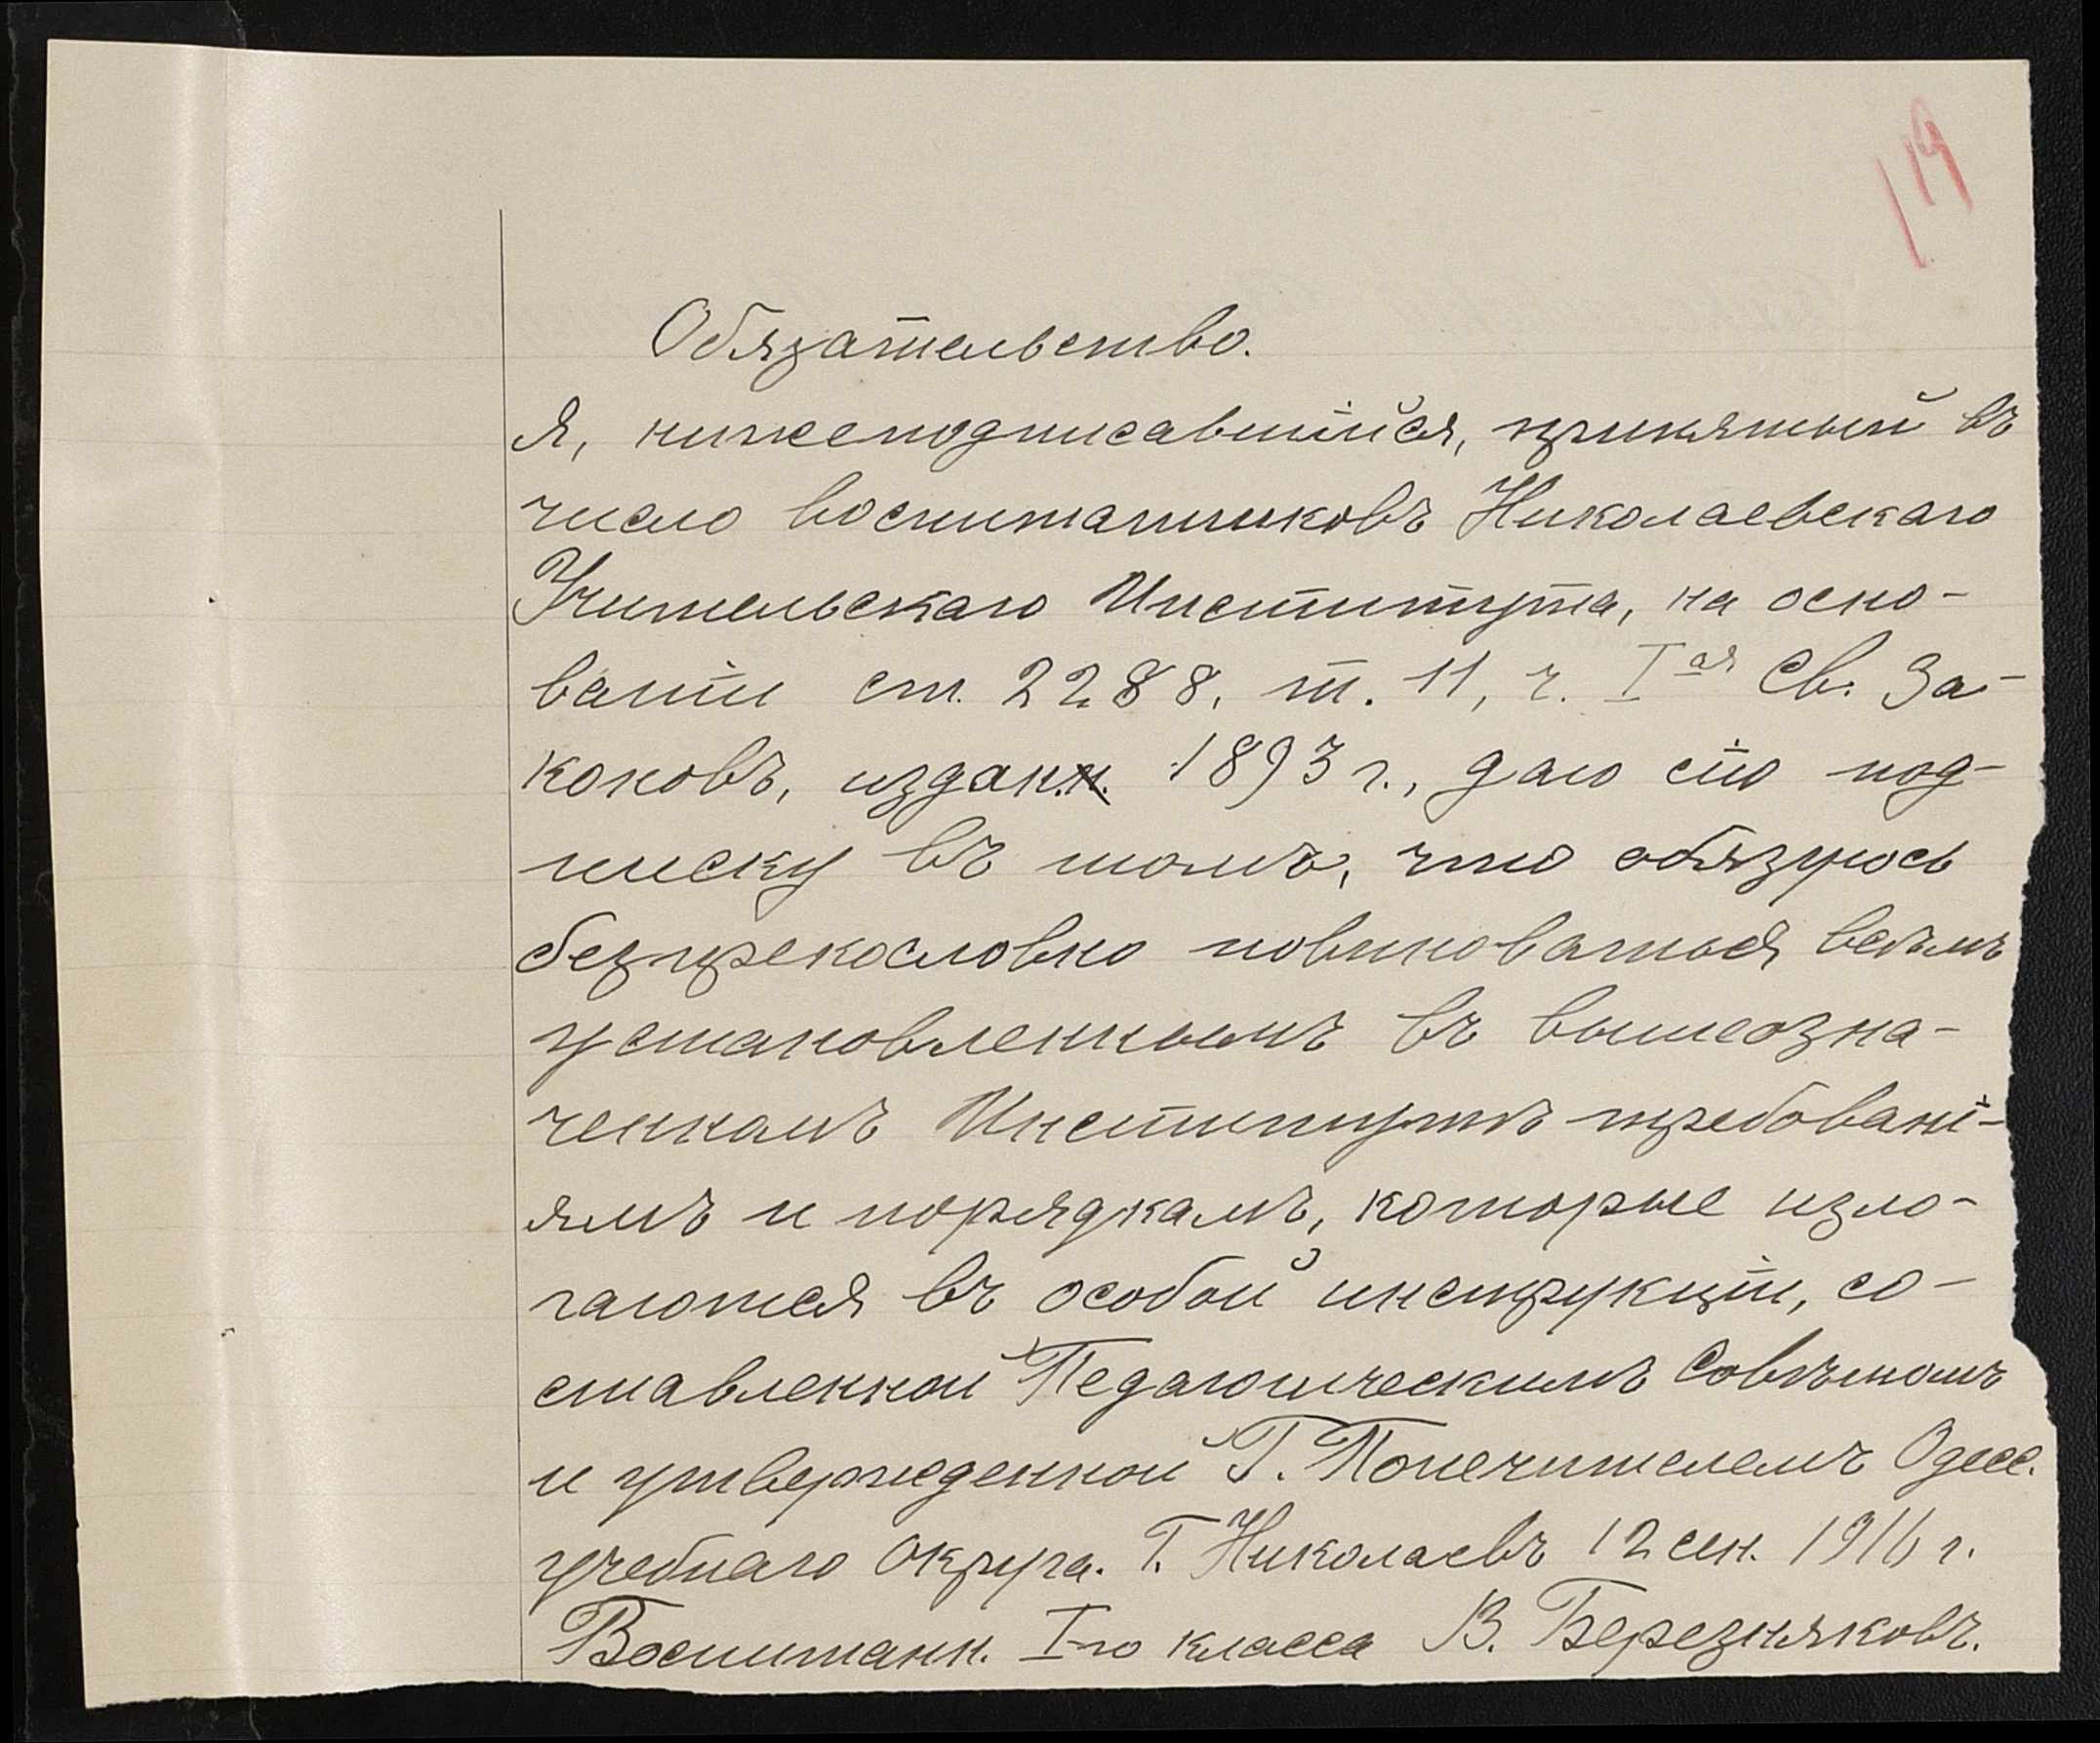 119
Обязательство.
Я, нижеподписавшійся, принятый въ
число воспитанниковъ Николаевскаго
Учительскаго Института, на осно-
ваніи ст. 2288, т. 11, ч. Iая Св. За-
коновъ, издан. 1893 г., даю сію под-
писку въ томъ, что обязуюсь
безпрекословно повиноваться всѣмъ
установленнымъ въ вышеозна-
ченномъ Институтѣ требовані-
ямъ и порядкамъ, которые изло-
гаются въ особой инструкціи, со-
ставленной Педагогическимъ Совѣтомъ
и утвержденной Г. Попечителемъ Одесс.
учебнаго Округа. Г. Николаевъ 12 сен. 1916 г.
Воспитанн. I-го класса В. Березняковъ.